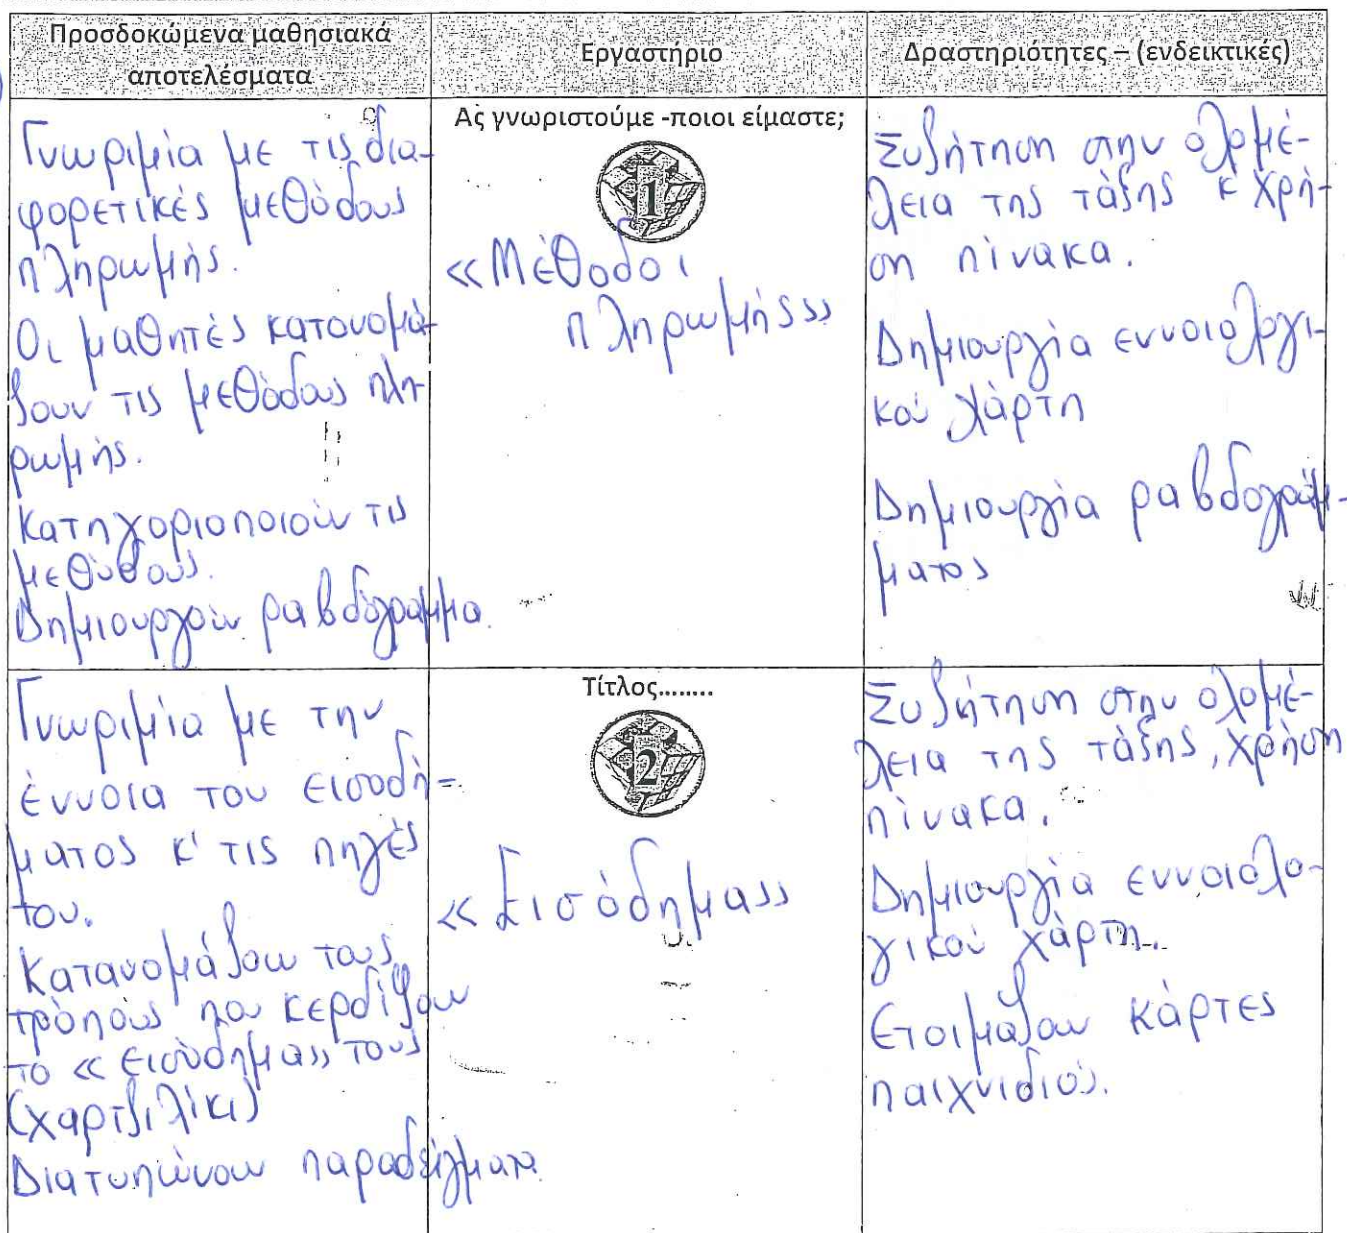 Προσδοκώμενα μαθησιακά
αποτελέσματα
Εργαστήριο
Δραστηριότητες – (ενδεικτικές)
Γνωριμία με τις δια-
φορετικές μεθόδους
πληρωμής.
Οι μαθητές κατονομά-
ζουν τις μεθόδους πλη-
ρωμής.
Κατηγοριοποιούν τις
μεθόδους.
Δημιουργούν ραβδόγραμμα
Ας γνωριστούμε -ποιοι είμαστε;
1
«Μέθοδοι
πληρωμής»
Συζήτηση στην ολομέ-
λεια της τάξης κ' χρή-
ση πίνακα.
Δημιουργία εννοιολογι-
κού χάρτη
Δημιουργία ραβδογράμ-
ματος
Γνωριμία με την
έννοια του εισοδή-
ματος κ' τις πηγές
του.
Κατανομάζουν τους
τρόπους που κερδίζουν
το «εισόδημα» τους
(χαρτζιλίκι)
Διατυπώνουν παραδείγματα
Τίτλος........
2
«Εισόδημα»
Συζήτηση στην ολομέ-
λεια της τάξης, χρήση
πίνακα.
Δημιουργία εννοιολο-
γικού χάρτη.
Ετοιμάζουν κάρτες
παιχνιδιού.